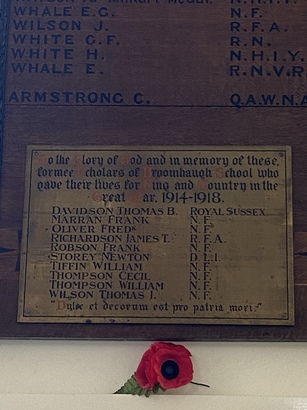 WHALE E.G. N.F.
WILSON J. R.F.A.
WHITE G.F. R.N.
WHITE H. N.H.I.Y.
WHALE E. R.N.V.R
ARMSTRONG C. Q.A.W.N.A
To the Glory of God and in memory of these,
former scholars of Broomhaugh School who
gave their lives for King and Country in the
Great War. 1914-1918.
DAVIDSON THOMAS B. ROYAL SUSSEX
MARRAN FRANK N.F.
OLIVER FREDK N.F.
RICHARDSON JAMES T. R.F.A.
ROBSON FRANK N.F.
STOREY NEWTON D.L.I.
TIFFIN WILLIAM N.F.
THOMPSON CECIL N.F.
THOMPSON WILLIAM N.F.
WILSON THOMAS J. N.F.
"Dulce et decorum est pro patria mori."